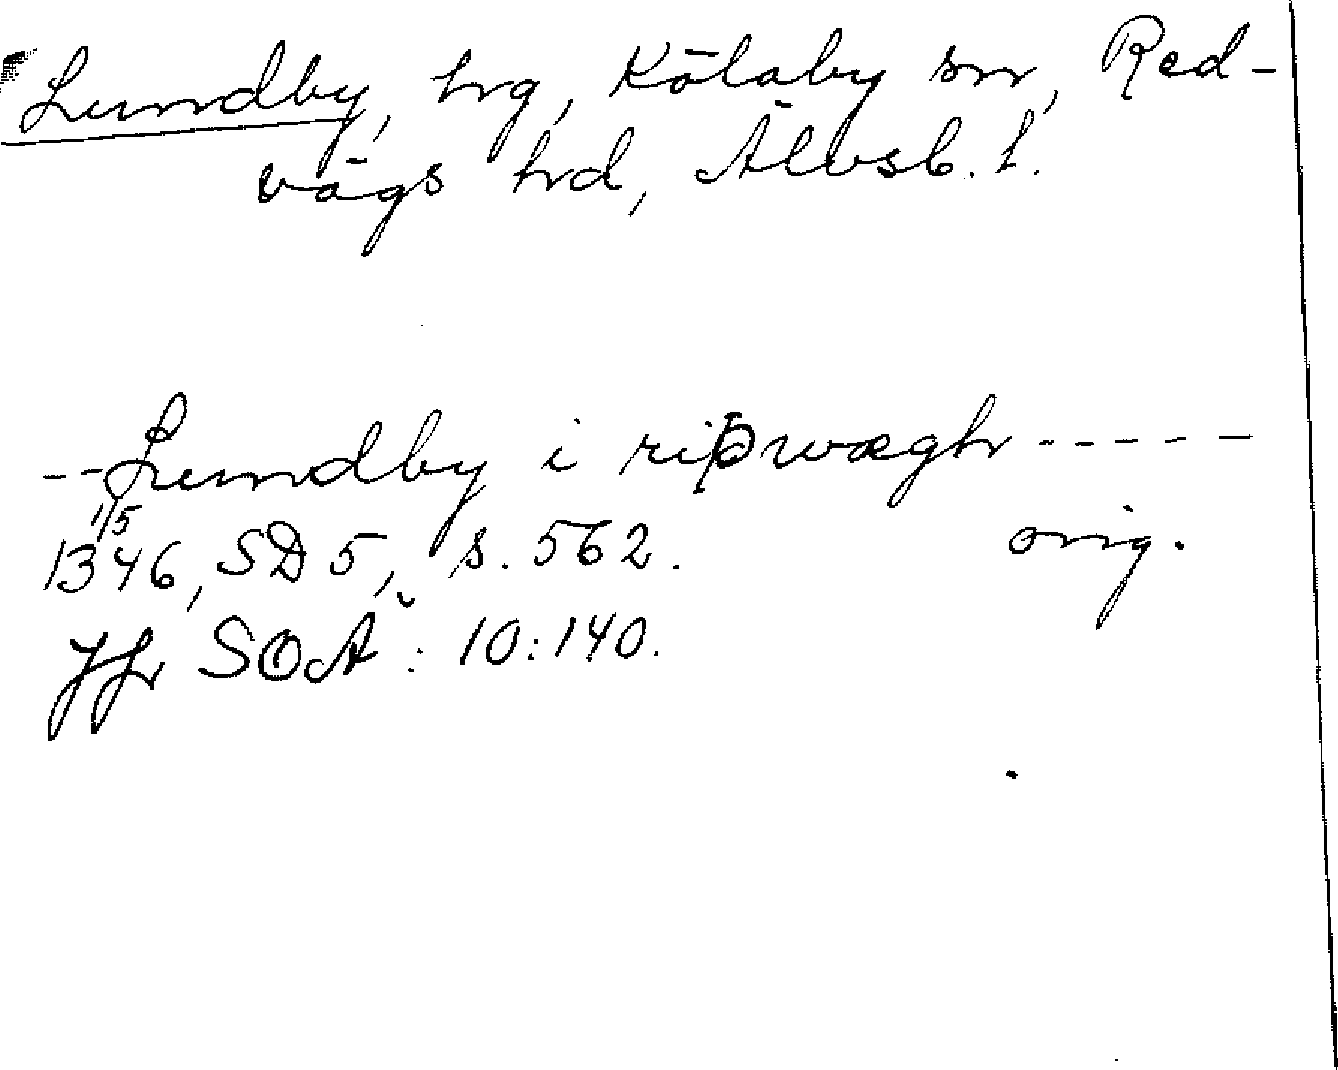 Lundby, hrg, Kölaby sn, Red-
vägs hd, Älvsb. l.
--Lundby i riþwægh-----
1/5
1346, SD 5, s. 562. orig.
Jfr SOÄ: 10:140.